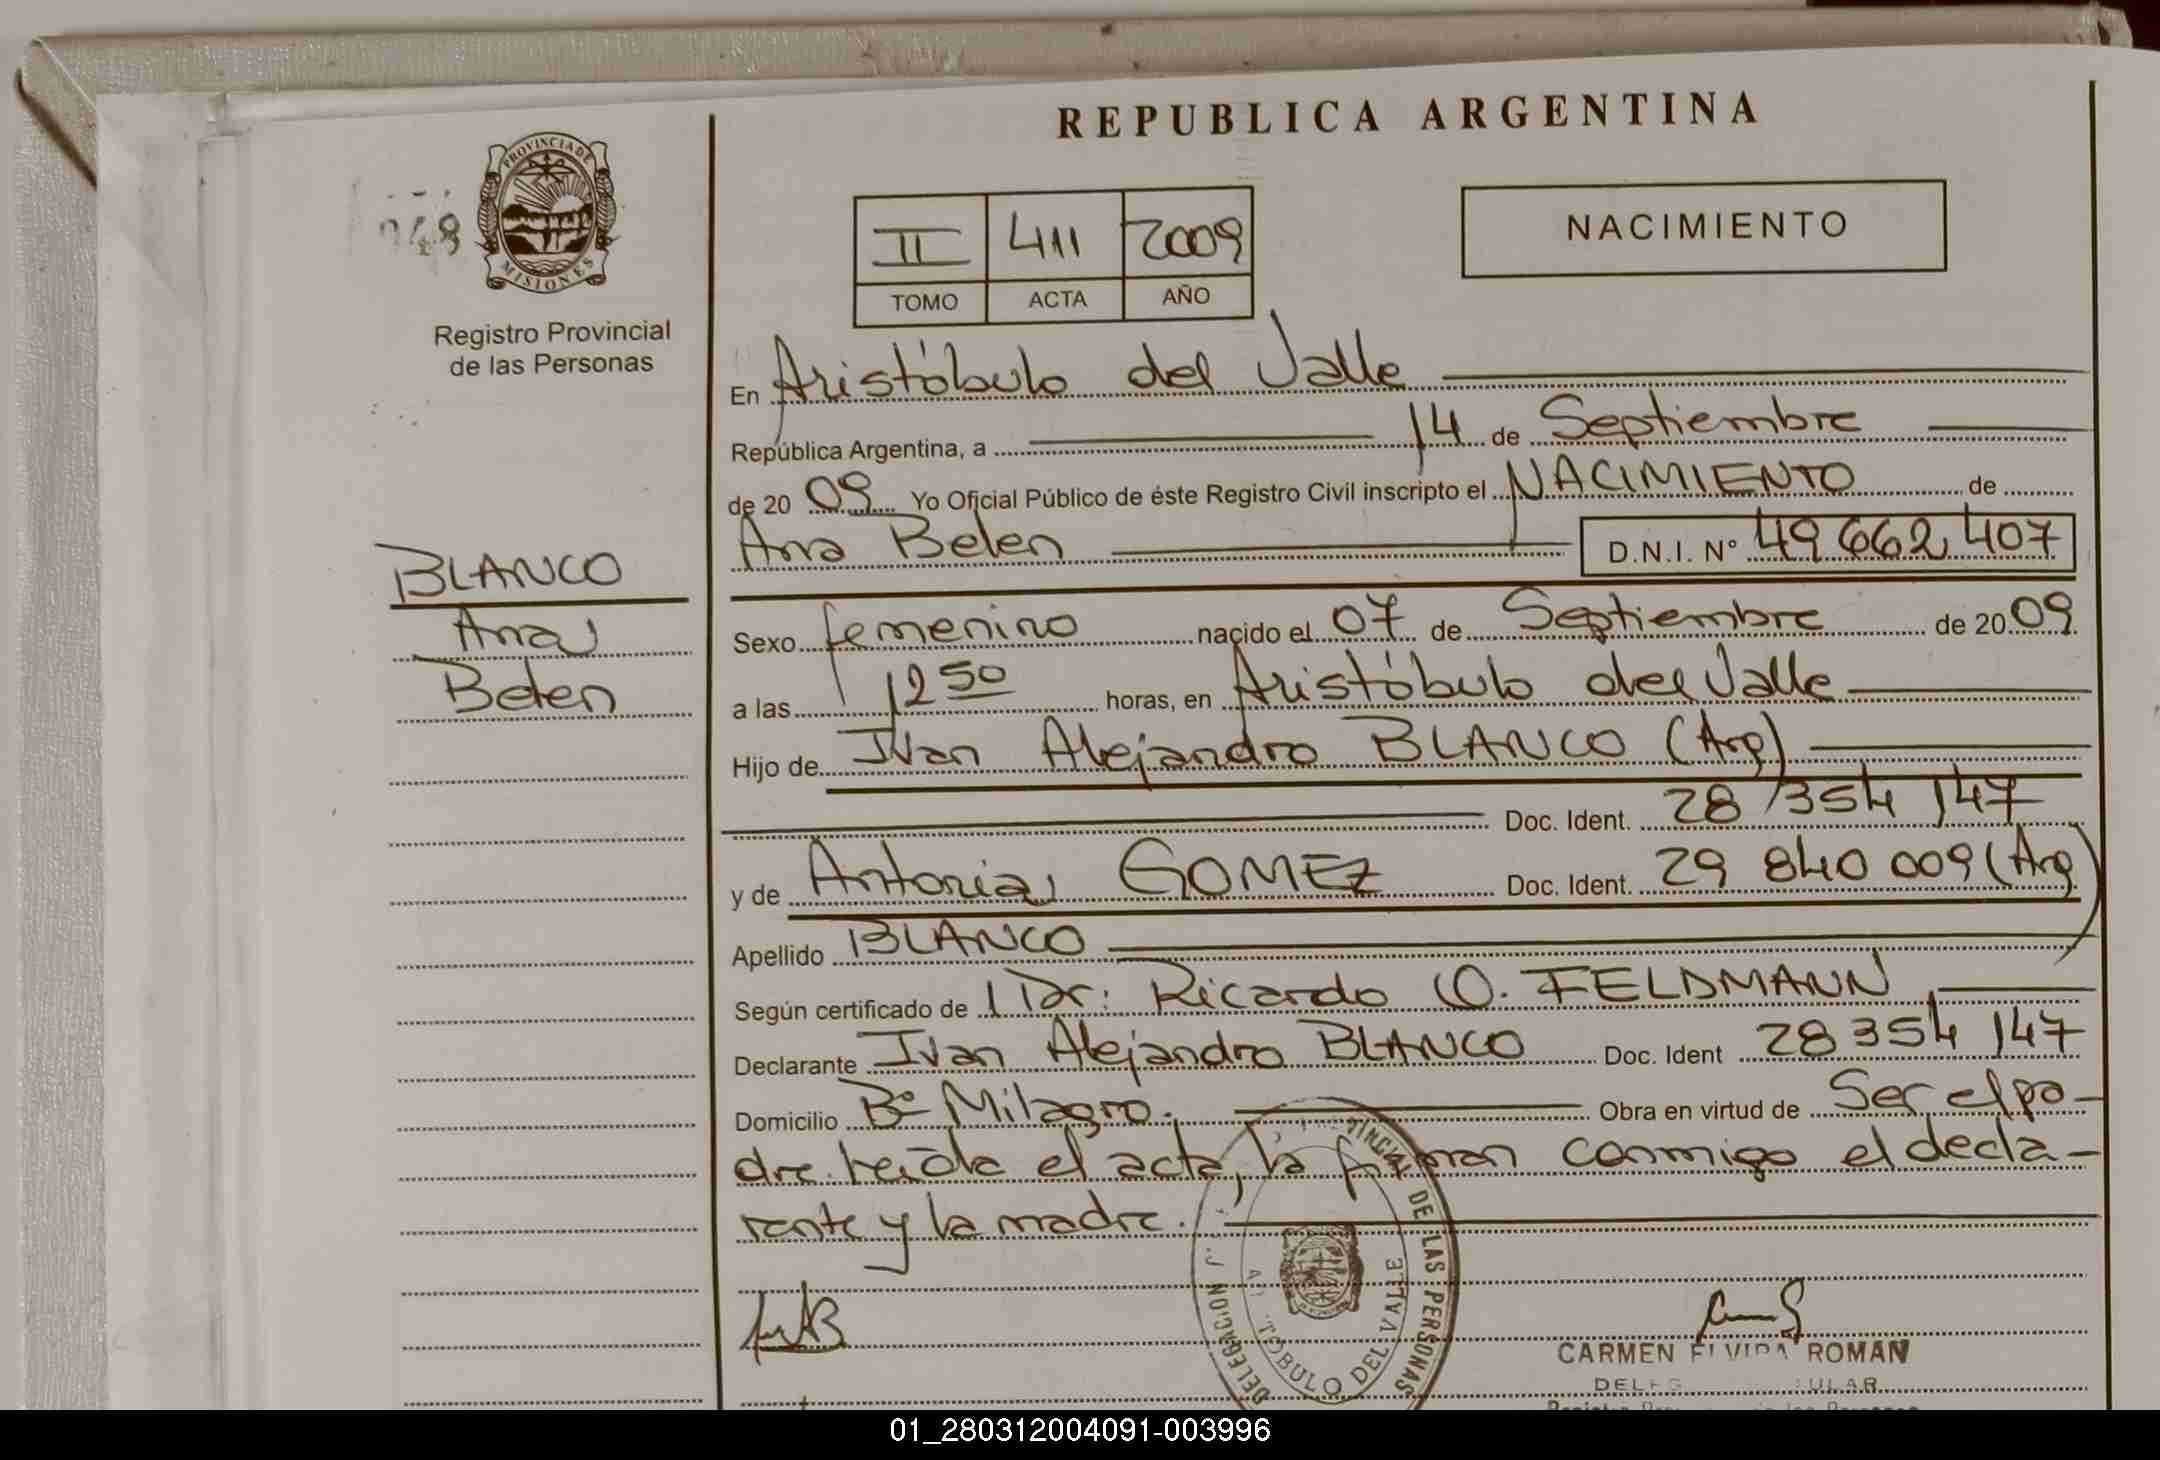 REPUBLICA ARGENTINA
PROVINCIA DE
MISIONES
048
Registro Provincial
de las Personas
II 411 2009
TOMO ACTA AÑO
NACIMIENTO
En Aristóbulo del Valle
República Argentina, a 14 de Septiembre
de 20 09 Yo Oficial Público de éste Registro Civil inscripto el NACIMIENTO de
Ana Belen D.N.I. Nº 49 662 407
BLANCO
Ana
Belen
Sexo femenino nacido el 07 de Septiembre de 20 09
a las 12 50 horas, en Aristóbulo del Valle
Hijo de Ivan Alejandro BLANCO (Arg)
Doc. Ident. 28 354 147
y de Antonia GOMEZ Doc. Ident. 29 840 009 (Arg)
Apellido BLANCO
Según certificado de Dr: Ricardo O. FELDMANN
Declarante Ivan Alejandro BLANCO Doc. Ident 28 354 147
Domicilio Bº Milagro. Obra en virtud de Ser el pa-
dre. Leida el acta, la firman conmigo el decla-
rante y la madre.
DE LAS PERSONAS
DELEGACION
DEL VALLE
CARMEN ELVIRA ROMAN
01_280312004091-003996